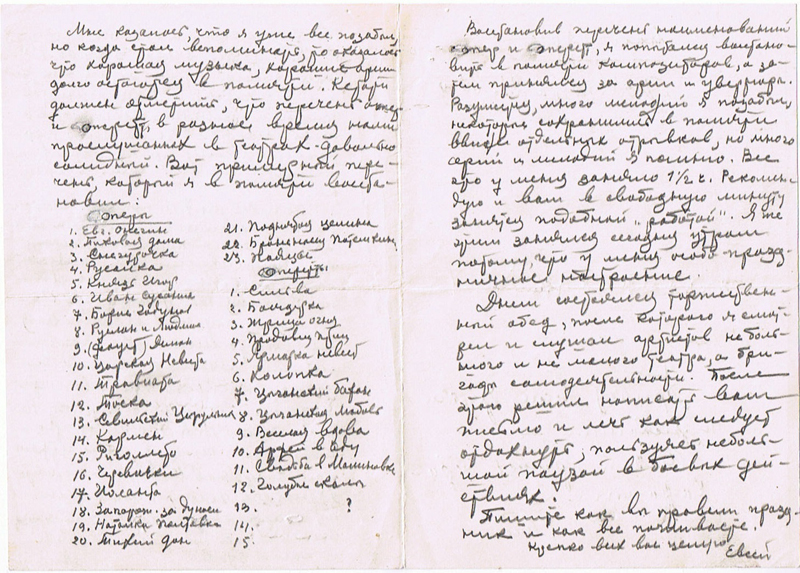 Мне казалось, что я уже все позабыл,
но когда стал вспоминать, то оказалось
что хорошая музыка, хорошие арии
долго остаются в памяти. Кстати
должен отметить, что перечень опер
и оперетт, в разное время нами
прослушанных в театрах – довольно
солидный. Вот примерный пере-
чень, который я в памяти восста-
новил:
Оперы
1. Евг. Онегин
2. Пиковая дама
3. Снегурочка
4. Русалка
5. Князь Игорь
6. Иван Сусанин
7. Борис Годунов
8. Руслан и Людмила
9. Фауст, Демон
10. Царская Невеста
11. Травиата
12. Тоска
13. Севильский Цирульник
14. Кармен
15. Риголетто
16. Черевички
17. Иоланта
18. Запорож. за Дунаем
19. Наталка Полтавка
20. Тихий дон
21. Поднятая целина
22. Броненосец Потемкин
23.
Оперетты
1. Сильва
2. Баядерка
3. Жрица огня
4. Продавец птиц
5. Ярмарка невест
6. Холопка
7. Цыганский барон
8. Цыганская Любовь
9. Веселая вдова
10. Орфей в аду
11. Свадьба в Малиновке
12. Голубые скалы
13. ?
14.
15.
Восстановив перечень наименований
опер и оперетт, я попытался восстано-
вить в памяти композиторов, а за-
тем принялся за арии и увертюры.
Разумеется, много мелодий я позабыл,
некоторые сохранились в памяти
ввиде отдельных отрывков, но много
арий и мелодий я помню. Все
это у меня заняло 1½ ч. Рекомен-
дую и вам в свободную минуту
заняться подобной „работой". Я же
этим занялся сегодня утром
потому что у меня особо празд-
ничное настроение.
Днем состоялся торжествен-
ный обед, после которого я смот-
рел и слушал артистов не боль-
шого и не малого театра, а бри-
гады самодеятельности. После
этого решил написать вам
письмо и лечь как следует
отдохнуть, пользуясь неболь-
шой паузой в боевых дей-
ствиях.
Пишите как вы провели празд-
ник и как все поживаете.
Крепко всех вас целую
Евсей